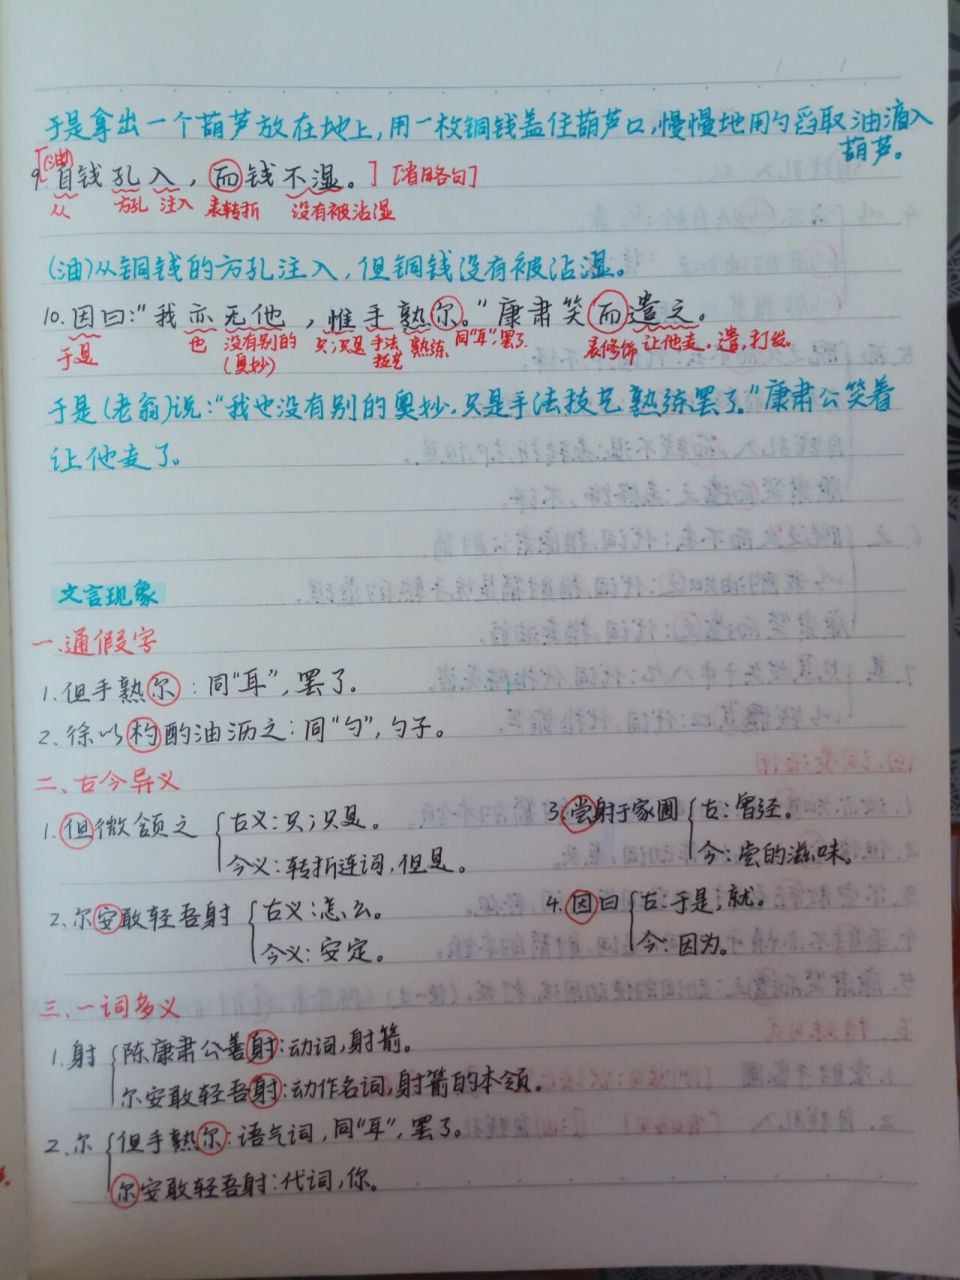 于是拿出一个葫芦放在地上,用一枚铜钱盖住葫芦口,慢慢地用勺舀取油滴入
葫芦。
[(油)
9.自钱孔入,而钱不湿。] [省略句]
从 方孔 注入 表转折 没有被沾湿
(油)从铜钱的方孔注入,但铜钱没有被沾湿。
10.因曰:“我亦无他,惟手熟尔。”康肃笑而遣之。
于是 也 没有别的 只,只是 手法 熟练 同“耳”,罢了 表修饰 让他走。遣,打发。
(奥妙) 技艺
于是(老翁)说:“我也没有别的奥妙,只是手法技艺熟练罢了。”康肃公笑着
让他走了。
文言现象
一.通假字
1.但手熟尔:同“耳”,罢了。
2.徐以杓酌油沥之:同“勺”,勺子。
二、古今异义
1.但微颔之 古义:只,只是。
今义:转折连词,但是。
3.尝射于家圃 古:曾经。
今:尝的滋味。
2.尔安敢轻吾射 古义:怎么。
今义:安定。
4.因曰 古:于是,就。
今:因为。
三、一词多义
1.射 陈康肃公善射:动词,射箭。
尔安敢轻吾射:动作名词,射箭的本领。
2.尔 但手熟尔:语气词,同“耳”,罢了。
尔安敢轻吾射:代词,你。